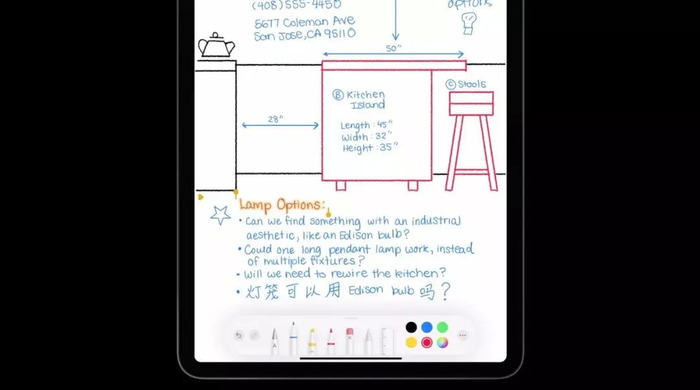 (408) 555-4450
5677 Coleman Ave
San Jose, CA 95110
options
50"
Ⓒ Stools
Ⓑ Kitchen
Island
Length: 45"
Width: 32"
Height: 35"
28"
Lamp Options:
• Can we find something with an industrial
aesthetic, like an Edison bulb?
• Could one long pendant lamp work, instead
of multiple fixtures?
• Will we need to rewire the kitchen?
• 灯笼可以用 Edison bulb 吗?